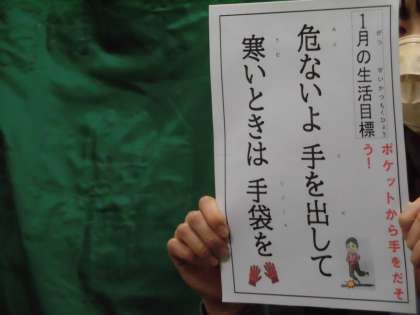 1月の生活目標
ポケットから手をだそう!
危ないよ 手を出して
寒いときは 手袋を